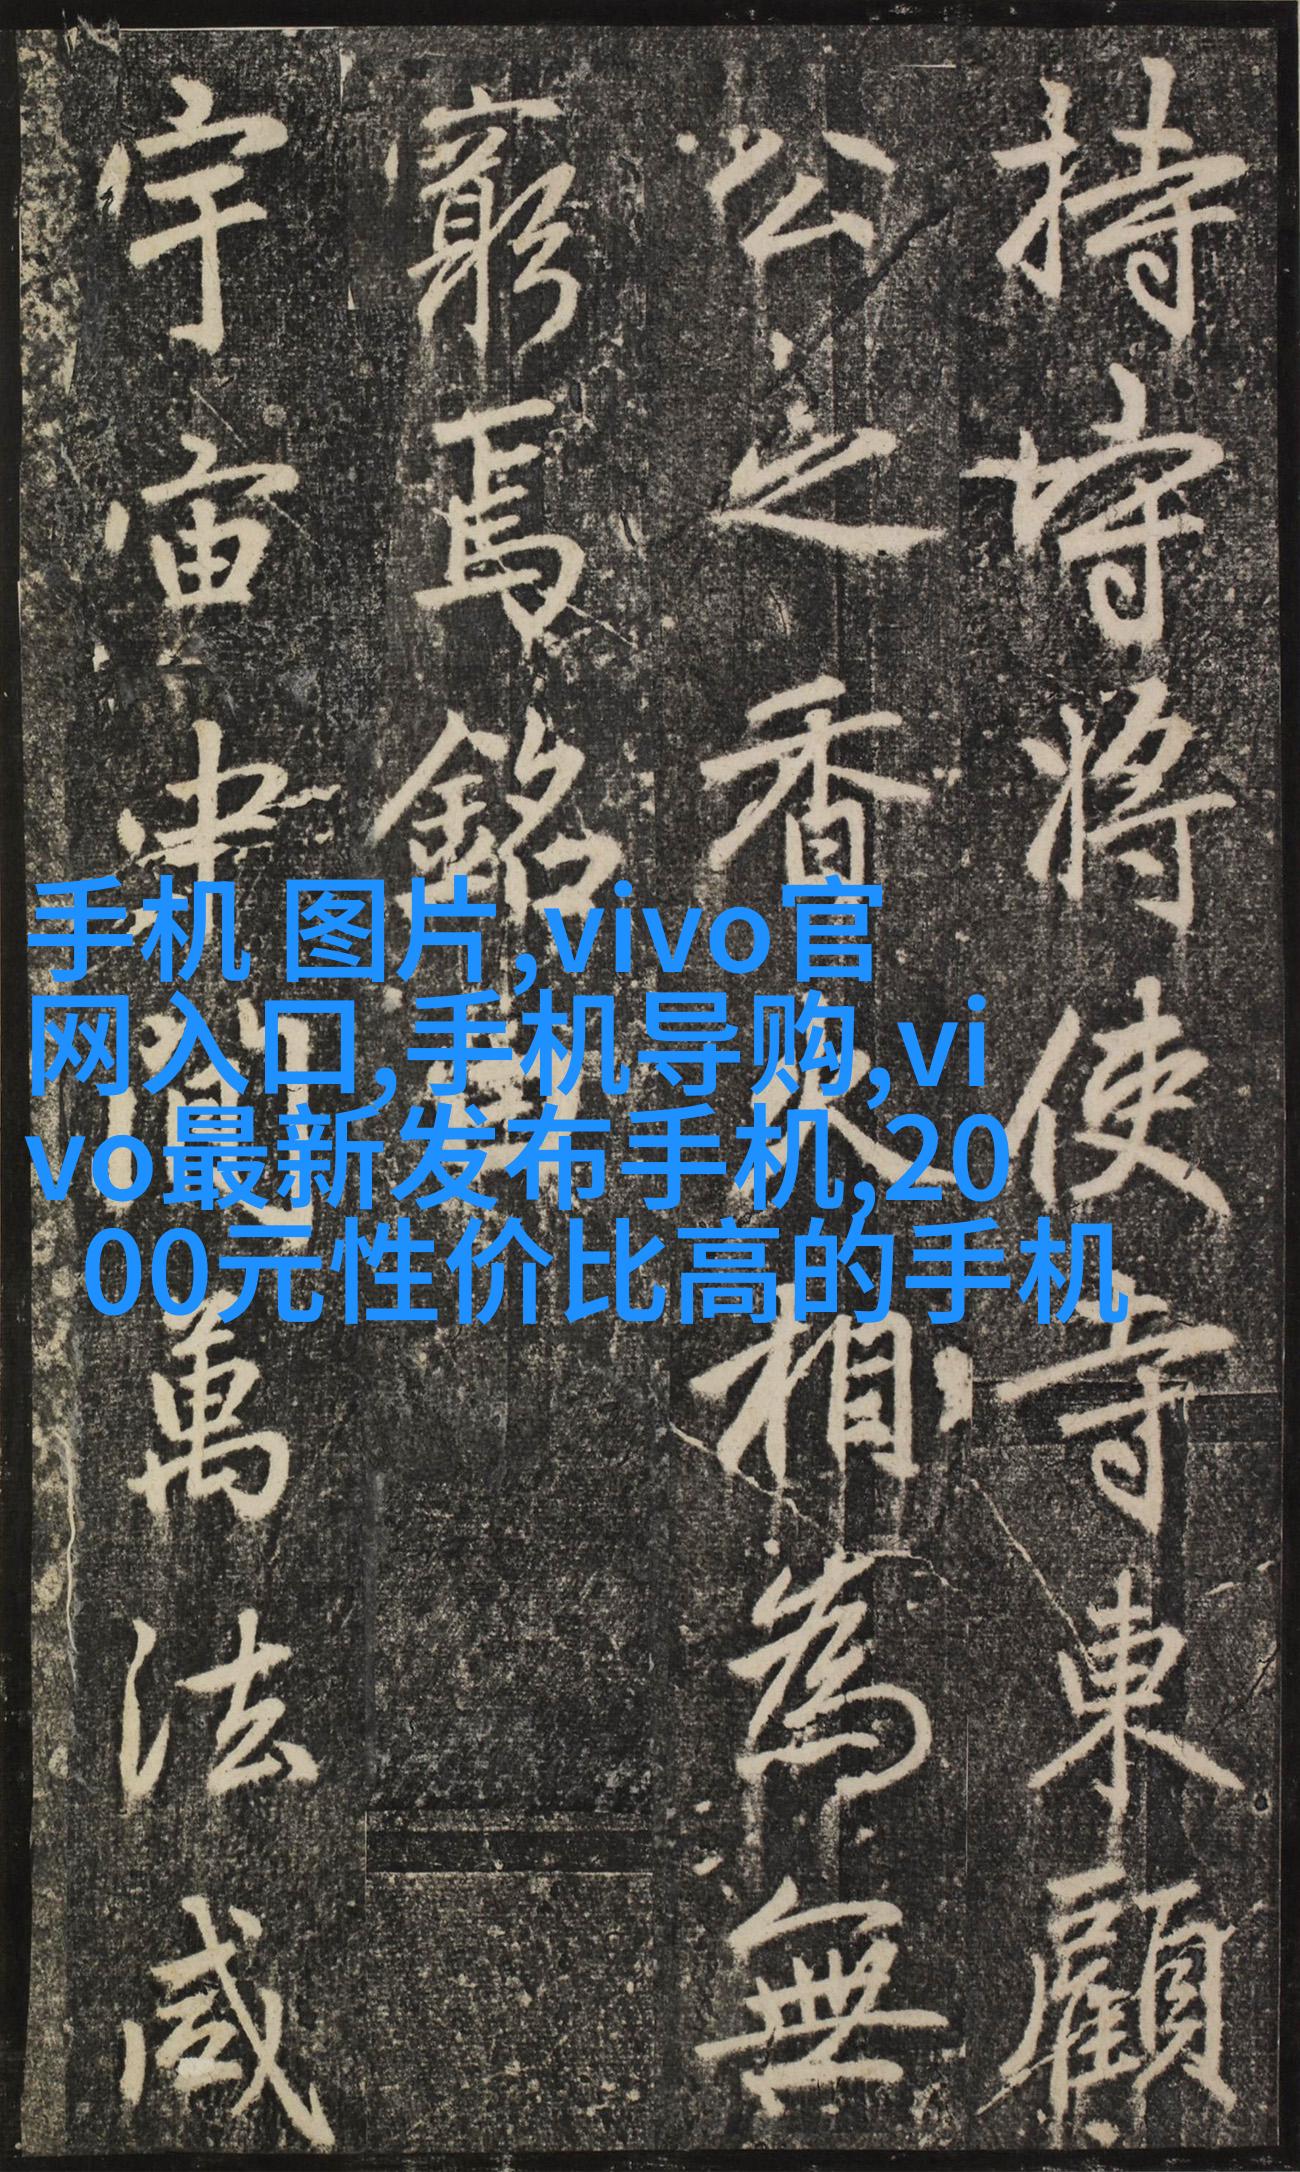 持
將使寺東顧
公之香火相為無
窮焉銘曰
宇宙中間萬法咸
手机 图片,vivo官
网入口,手机导购,vi
vo最新发布手机,20
00元性价比高的手机